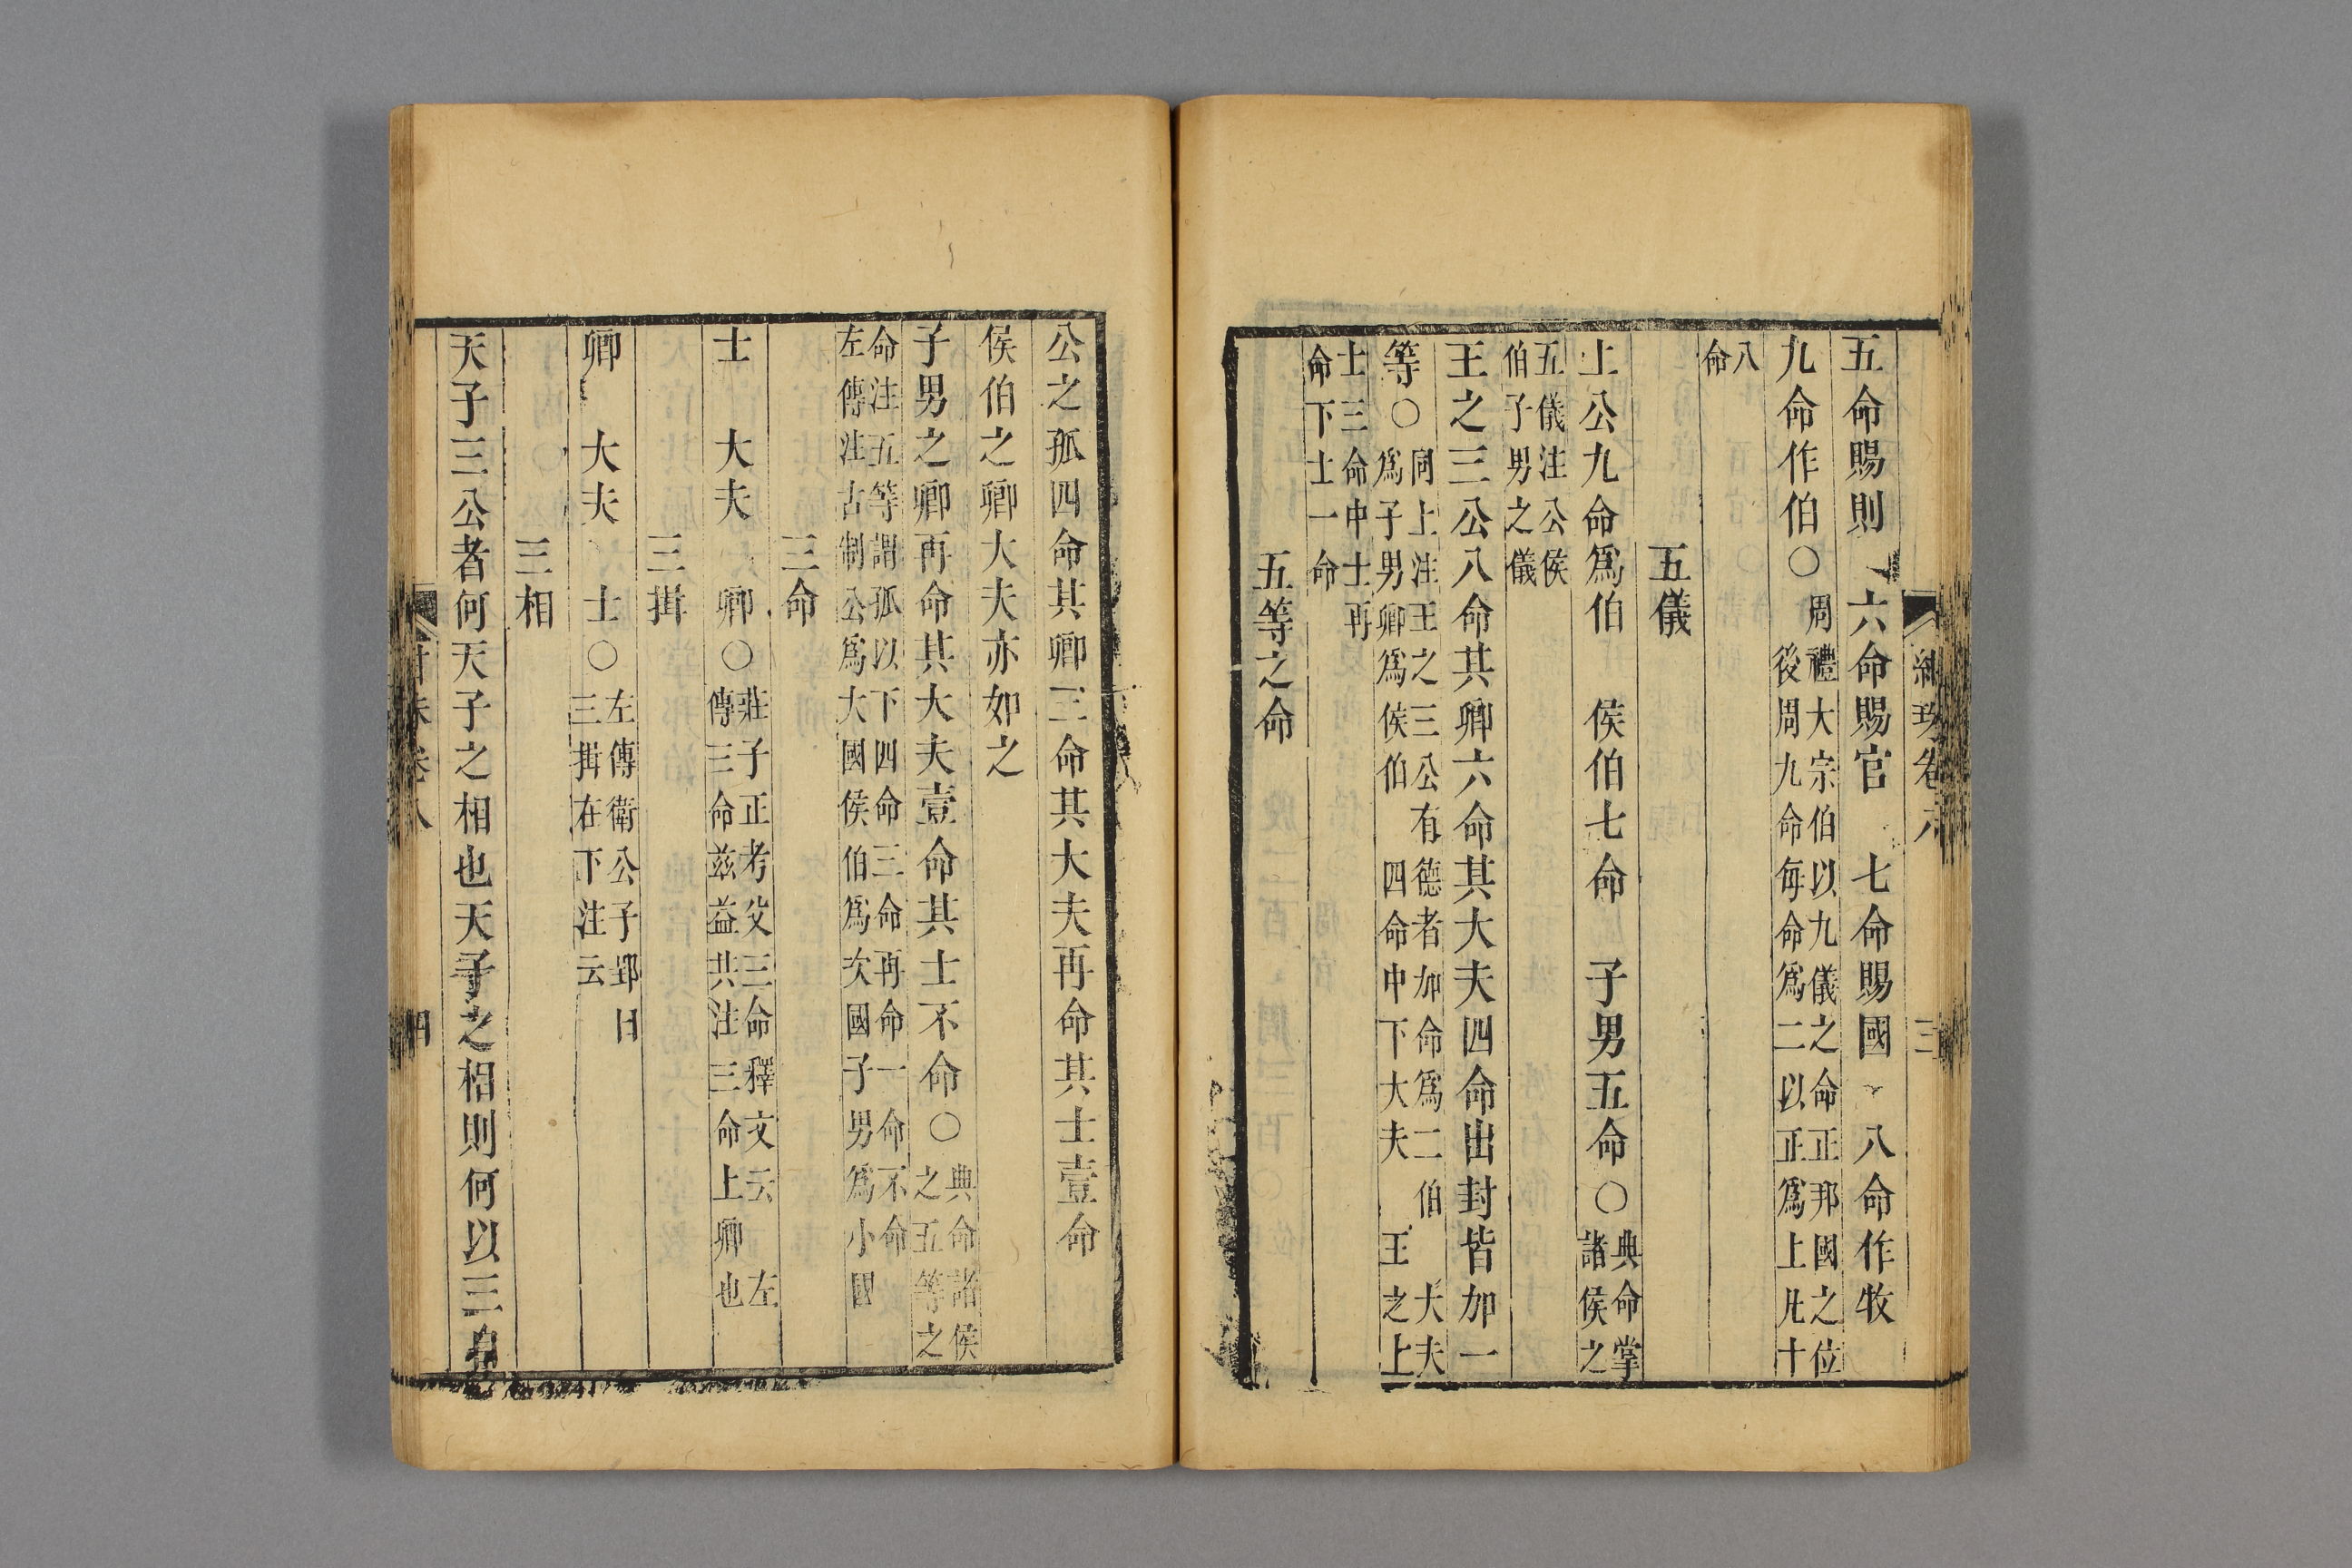 五命賜則　六命賜官　七命賜國　八命作牧
九命作伯○周禮大宗伯以九儀之命正邦國之位
後周九命每命爲二以正爲上凡十
八
命
五儀
上公九命爲伯　侯伯七命　子男五命○典命掌
諸侯之
五儀注公侯
伯子男之儀
王之三公八命其卿六命其大夫四命出封皆加一
等○同上注王之三公有德者加命爲二伯　大夫
爲子男卿爲侯伯　四命中下大夫　王之上
士三命中士再
命下士一命
五等之命
公之孤四命其卿三命其大夫再命其士壹命
侯伯之卿大夫亦如之
子男之卿再命其大夫壹命其士不命○典命諸侯
之五等之
命注五等謂孤以下四命三命再命一命不命
左傳注古制公爲大國侯伯爲次國子男爲小國
三命
士　大夫　卿○莊子正考父三命釋文云　左
傳三命茲益共注三命上卿也
三揖
卿　大夫　士○左傳衛公子郢曰
三揖在下注云
三相
天子三公者何天子之相也天子之相則何以三自